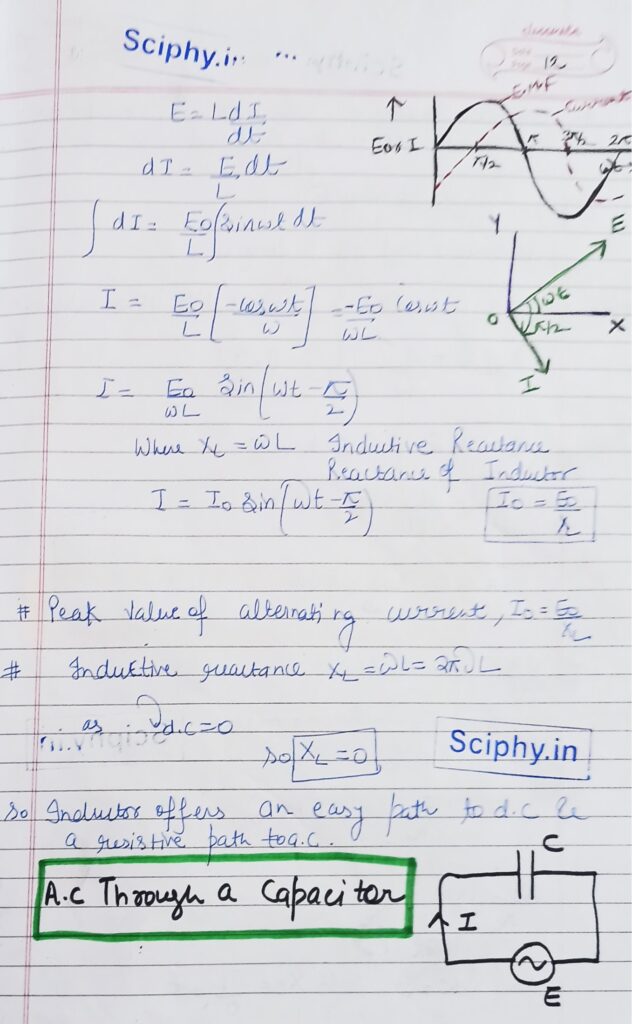 Sciphy.in ...
classmate
Date
Page 12
E = L dI/dt
dI = E/L dt
∫ dI = E0/L ∫ sin ωt dt
I = E0/L [-cos ωt/ω] = -E0/ωL cos ωt
I = E0/ωL sin (ωt - π/2)
Where XL = ωL Inductive Reactance
Reactance of Inductor
I = I0 sin (ωt - π/2) I0 = E0/XL
↑
E or I
EMF
Current
π/2 π 3π/2 2π
ωt
Y
E
ωt
O π/2 X
I
# Peak value of alternating current, I0 = E0/XL
# Inductive reactance XL = ωL = 2πνL
as ν d.c = 0
so XL = 0
Sciphy.in
So Inductor offers an easy path to d.c &
a resistive path to a.c.
A.C Through a Capacitor
C
I
E